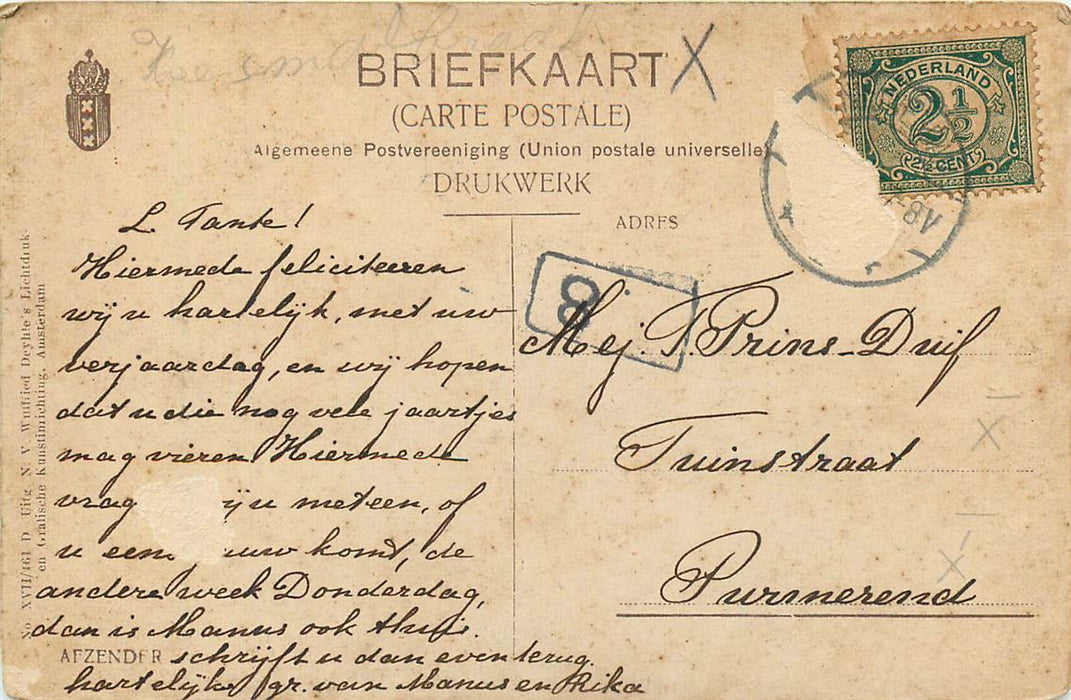 BRIEFKAART X
(CARTE POSTALE)
Algemeene Postvereeniging (Union postale universelle)
DRUKWERK
NEDERLAND
2 1/2
2½ CENT
ADRES
8
L. Tante!
Hiermede feliciteeren
wij u hartelijk, met uw
verjaardag, en wij hopen
dat u die nog vele jaartjes
mag vieren Hiermede
vrag ij u meteen, of
u eens uw komt, de
andere week Donderdag,
dan is Manus ook thuis.
AFZENDER schrijft u dan even terug.
hartelijke gr. van Manus en Rika
Mej. T. Prins-Duif
Tuinstraat
Purmerend
No XVII/461 D. Uitg. N. V. Winfried Deyhle's Lichtdruk-
en Grafische Kunstinrichting, Amsterdam